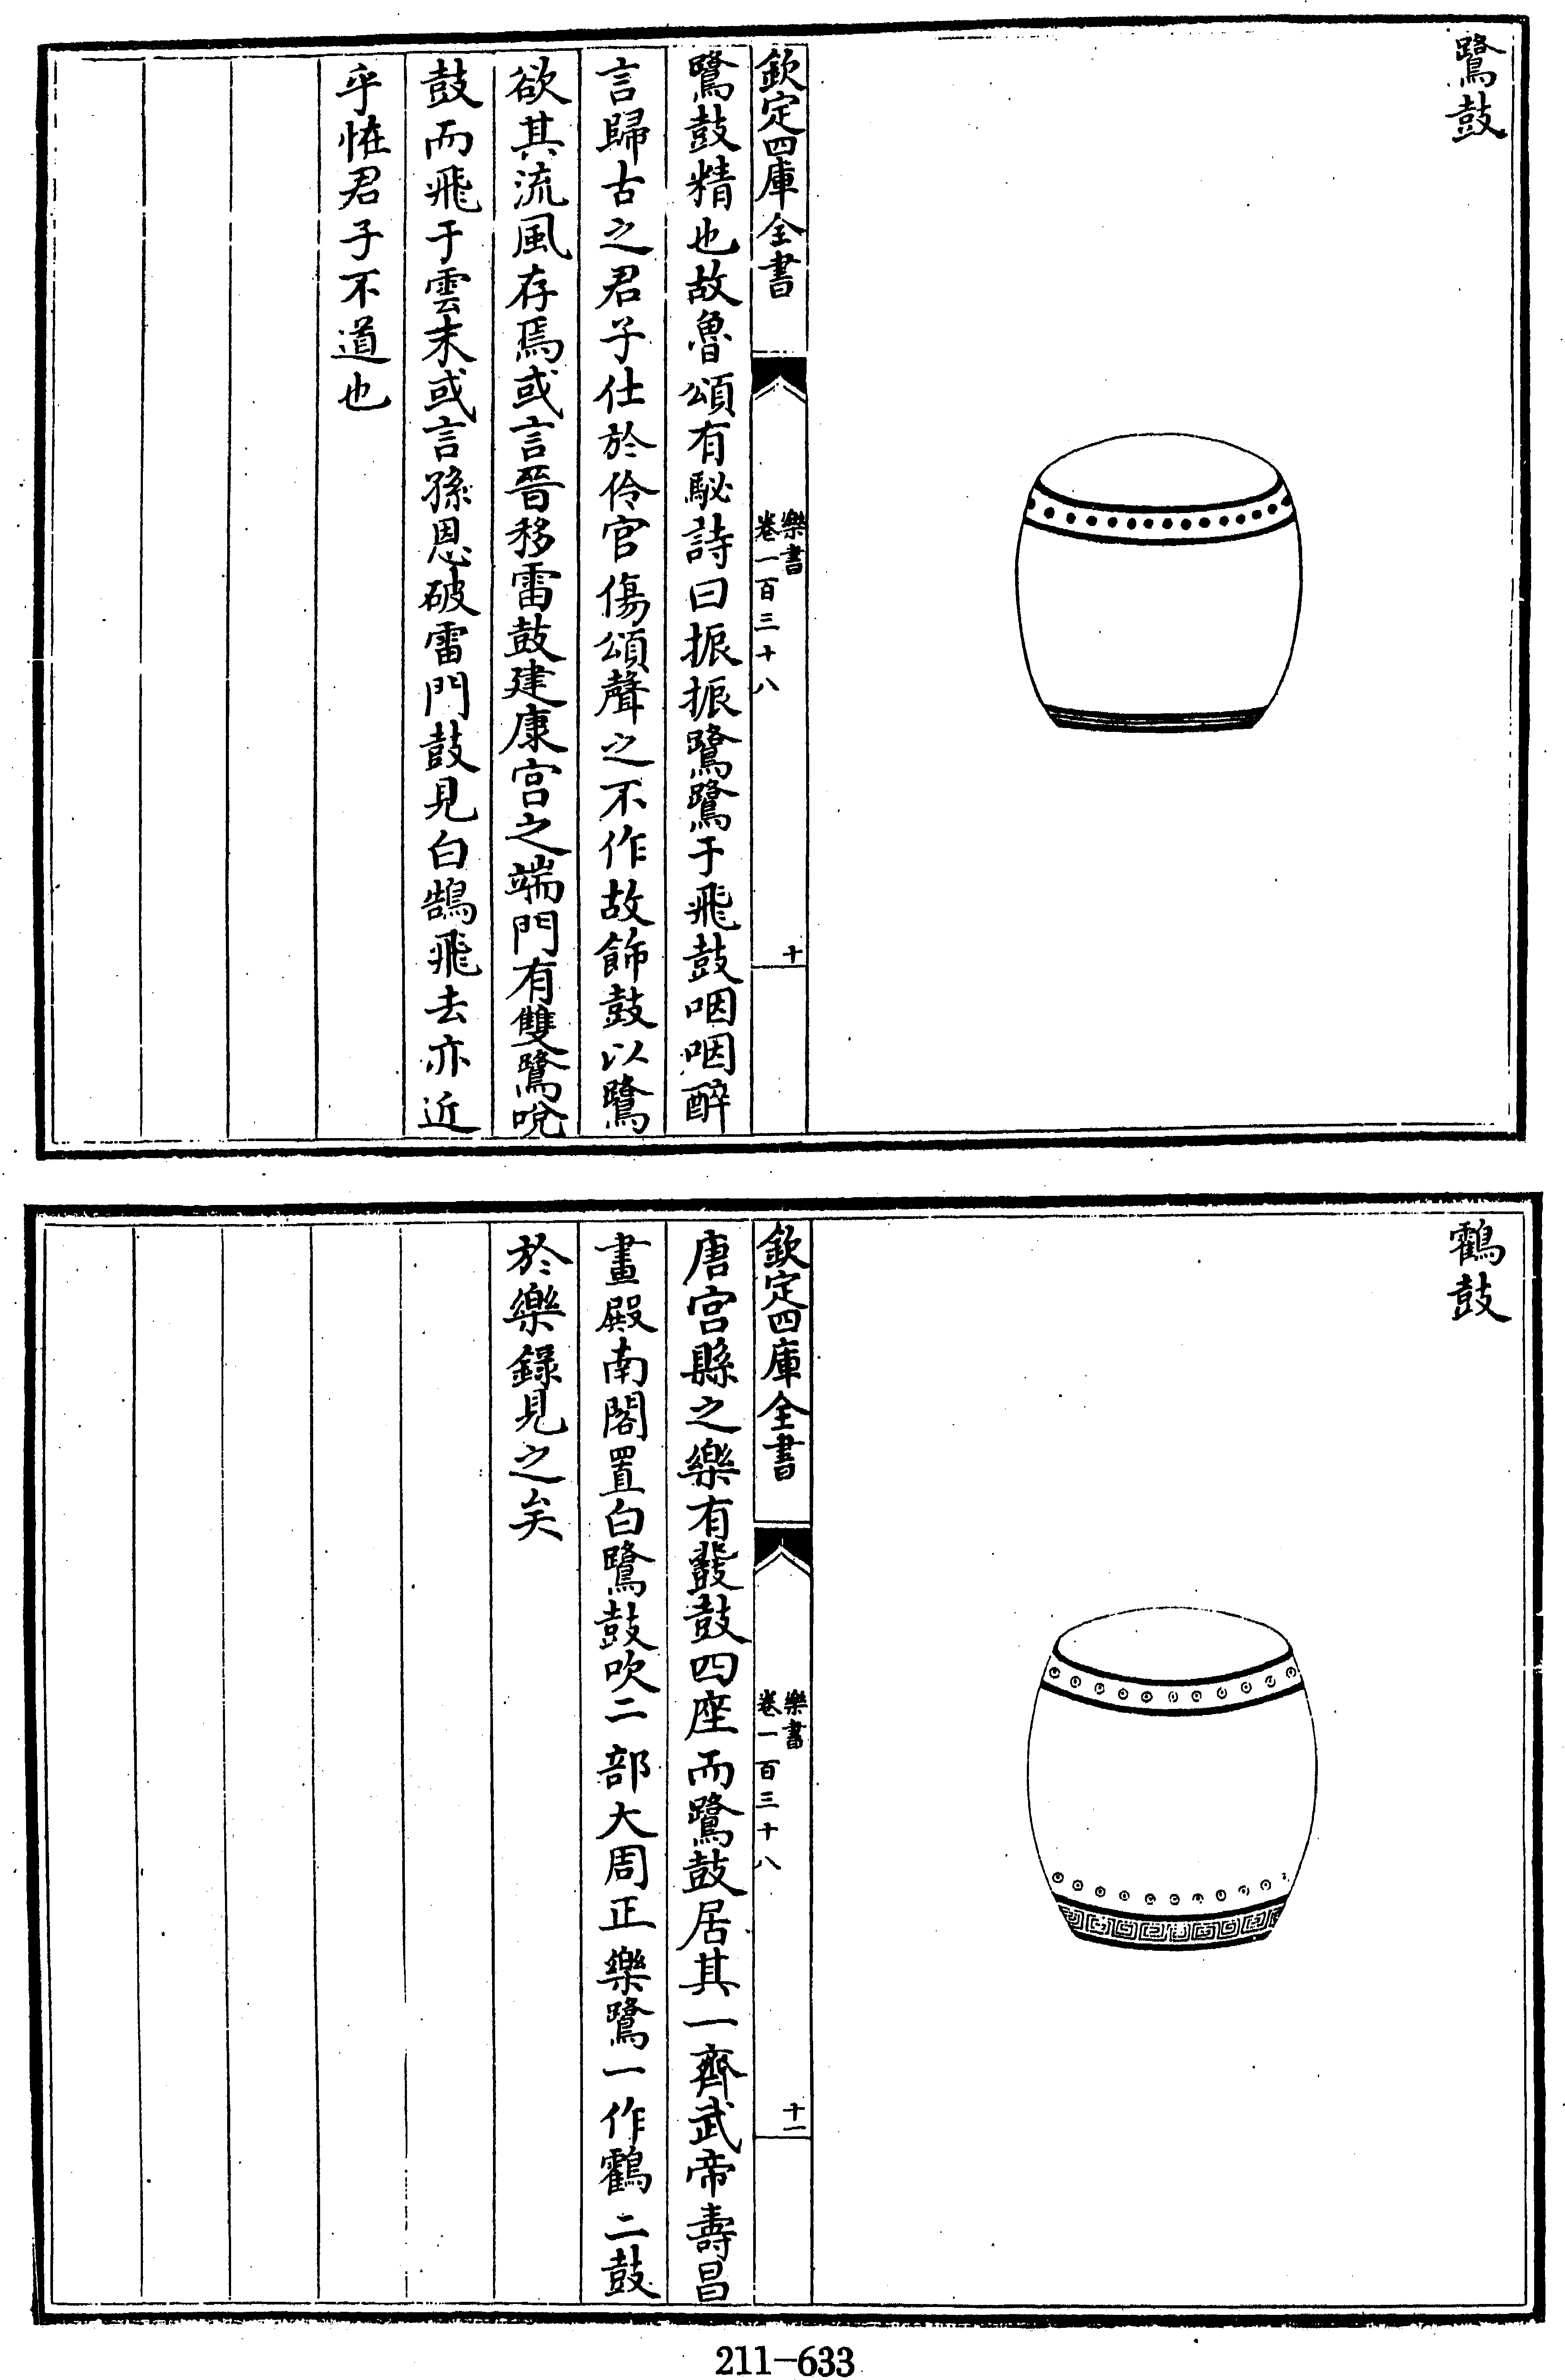 鷺鼓
欽定四庫全書
樂書
卷一百三十八
十
鷺鼓精也故魯頌有駜詩曰振振鷺鷺于飛鼓咽咽醉
言歸古之君子仕於伶官傷頌聲之不作故飾鼓以鷺
欲其流風存焉或言晉移雷鼓建康宮之端門有雙鷺哾
鼓而飛于雲末或言孫恩破雷門鼓見白鵠飛去亦近
乎怪君子不道也
鸖鼓
欽定四庫全書
樂書
卷一百三十八
十一
唐宮縣之樂有鼗鼓四座而鷺鼓居其一齊武帝壽昌
畫殿南閣置白鷺鼓吹二部大周正樂鷺一作鸖二鼓
於樂錄見之矣
211-633